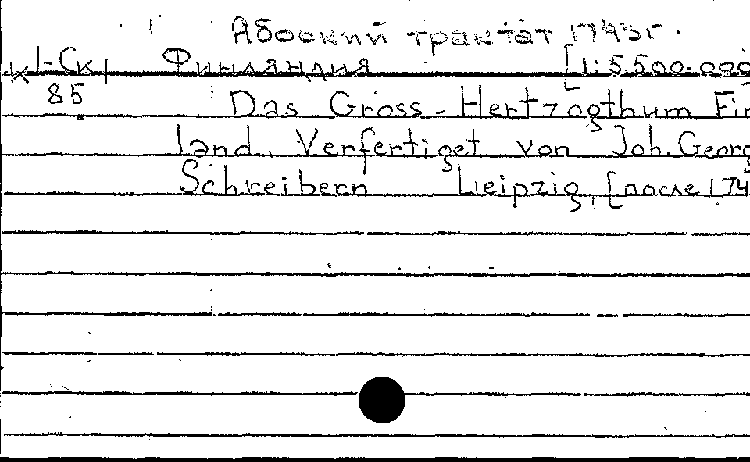 Абоский трактат 1743г.
К 1-Ск1 Финляндия [1:5.500.000
85 Das Gross-Hertzogthum Fin
land. Verfertiget von Joh. Georg
Schreibern Leipzig, [после 174